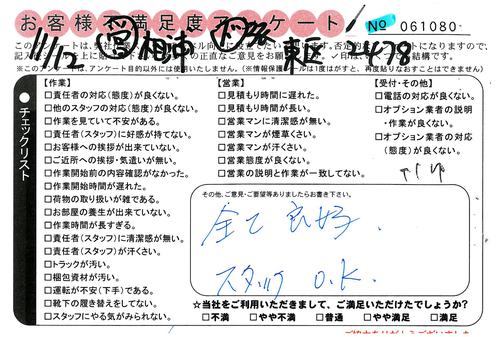 お客様不満足度アンケート
No 061080
11/12 相 東区 2478
※このアンケートは、アンケート目的以外には使用いたしません。
● チェックリスト
【作業】
□責任者の対応(態度)が良くない。
□他のスタッフの対応(態度)が良くない。
□作業を見ていて不安がある。
□責任者(スタッフ)に好感が持てない。
□お客様への挨拶が出来ていない。
□ご近所への挨拶・気遣いが無い。
□作業開始前の内容確認がなかった。
□作業開始時間が遅れた。
□荷物の取り扱いが雑である。
□お部屋の養生が出来ていない。
□作業時間が長すぎる。
□責任者(スタッフ)に清潔感が無い。
□責任者(スタッフ)が汗くさい。
□トラックが汚い。
□梱包資材が汚い。
□運転が不安(下手)である。
□靴下の履き替えをしてない。
□スタッフにやる気がみられない。
【営業】
□見積もり時間に遅れた。
□見積もり時間が長い。
□営業マンに清潔感が無い。
□営業マンが煙草くさい。
□営業マンが汗くさい。
□営業態度が良くない。
□営業の説明と作業が一致してない。
【受付・その他】
□電話の対応が良くない。
□オプション業者の説明
・作業が良くない。
□オプション業者の対応
(態度)が良くない。
その他、ご意見・ご要望等ありましたらお書き下さい。
全て良好.
スタッフ O.K.
☆当社をご利用いただきまして、ご満足いただけたでしょうか?
□不満 □やや不満 □普通 □やや満足 □満足